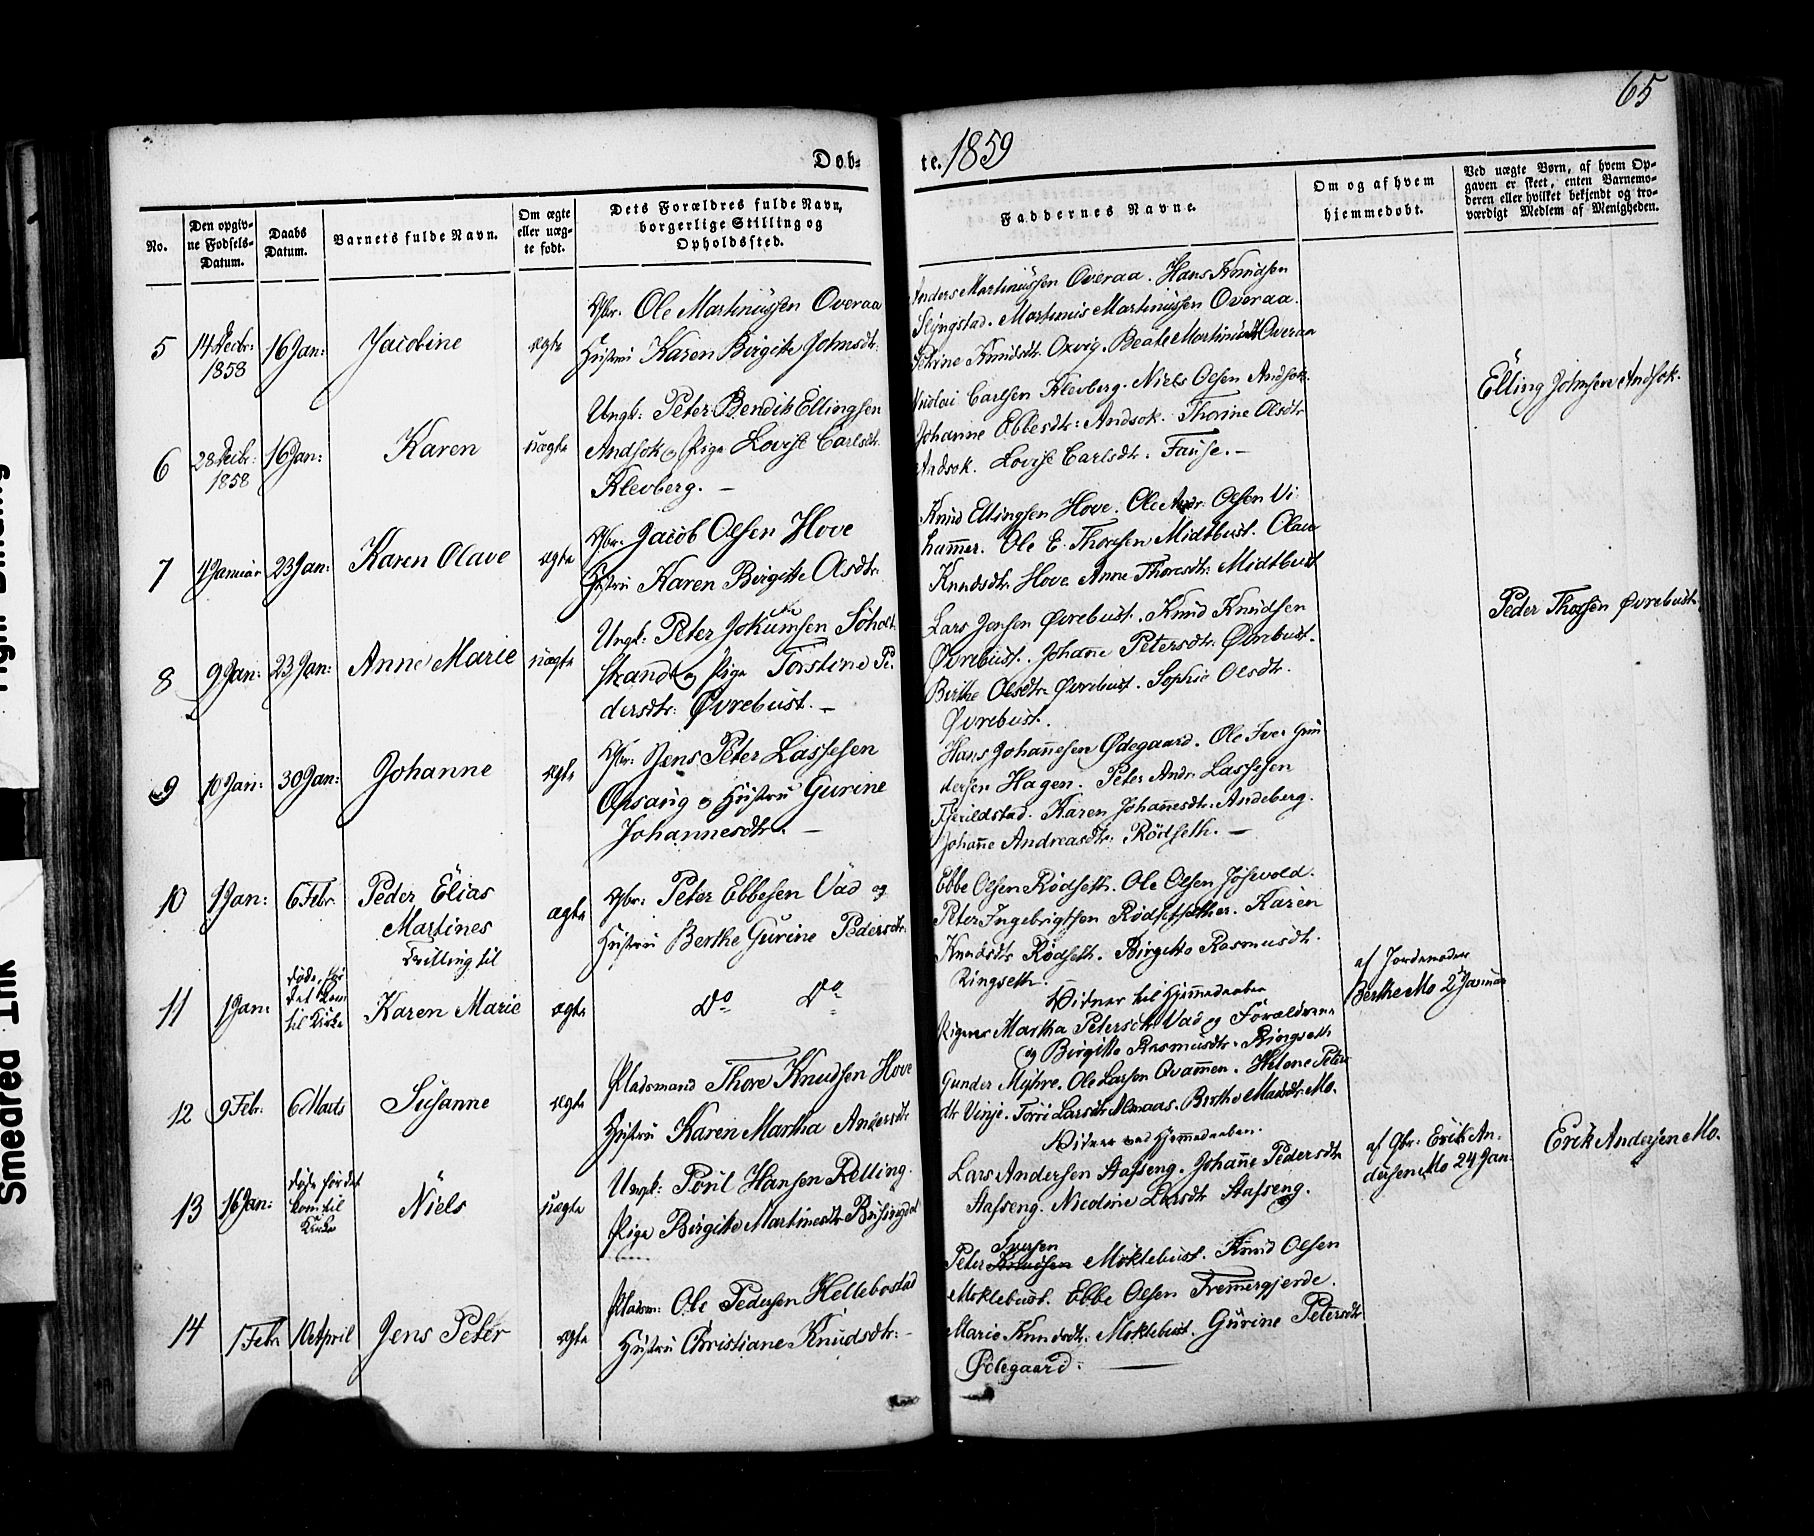 65
Døb-
te. 1859
No.
Den opgiv-
ne Fødsels-
Datum.
Daabs
Datum.
Barnets fulde Navn.
Om ægte
eller uæg-
te født.
Dets Forældres fulde Navn,
borgerlige Stilling og
Opholdssted.
Faddernes Navne.
Om og af hvem
hjemmedøbt.
Ved uægte Børn, af hvem Op-
gaven er skeet, enten Barnemo-
deren eller hvilket bekjendt og tro-
værdigt Medlem af Menigheden.
5
14 Decbr:
1858
16 Jan:
Jacobine
ægte
Gbr. Ole Martinussen Overaa
Hustru Karen Birgitte Johnsdtr.
Anders Martinussen Overaa. Hans Knudsen
Slyngstad. Martinus Martinussen Overaa.
Petrine Knudsdtr. Oxvig. Beate Overaa
6
28 Decbr:
1858
16 Jan:
Karen
uægte
Ungk: Peter Bendik Ellingsen
Andsok og Pige Lovise Carlsdtr.
Klevberg. –
Nicolai Carlsen Klevberg. Niels Olsen Andsok.
Johanne Ebbesdtr: Andsok. Thorine Olsdtr
Andsok. Lovise Carlsdtr. Fause. –
Elling Johnsen Andsok.
7
4 Januar
23 Jan:
Karen Olave
ægte
Gbr. Jacob Olsen Hove
Hustru Karen Birgitte Olsdtr.
Knud Ellingsen Hove. Ole Andr. Olsen Vi-
hammer. Ole E. Thoresen Midtbust. Olave
Knudsdtr. Hove. Anne Thoresdtr. Midtbust
8
9 Jan:
23 Jan:
Anne Marie
uægte
Ungk: Peter Jokumsen Søholt-
strand og Pige Torstine Pe-
dersdtr: Øvrebust. –
Lars Jensen Øvrebust. Knud Knudsen
Øvrebust. Johanne Petersdtr. Øvrebust.
Berthe Olsdtr. Øvrebust. Sophie Olsdtr.
Øvrebust.
Peder Thorsen Øvrebust.
9
10 Jan:
30 Jan:
Johanne
ægte
Gbr. Jens Peter Lassesen
Opsaug og Hustru Gurine
Johannesdtr. –
Hans Johannesen Ødegaard. Ole Iver Gun-
dersen Hagen. Peter Andr. Lassesen
Fjerildstad. Karen Johannesdtr. Andeberg.
Johanne Andreasdtr. Rødseth. –
10
1 Jan:
6 Febr.
Peder Elias
Martines
Tvilling til
ægte
Gbr: Peter Ebbesen Vad og
Hustru Berthe Gurine Pedersdtr.
Ebbe Olsen Rødseth. Ole Olsen
Peter Ingebrigtsen Rødsetsether. Karen
Knudsdtr Rødseth. Birgitte Rasmusdtr.
Ringseth.
11
1 Jan:
døde, før
det kom
til Kirke
Karen Marie
ægte
Do Do
Vidner til Hjemmedaaben
Pigerne Martha Petersdtr Vad og Forældrene
og Birgitte Rasmusdtr. Ringseth
af Jordemoder
Berthe Mo 2d Januar
12
9 Febr.
6 Marts
Susanne
ægte
Pladsmand Thore Knudsen Hove
Hustru Karen Martha Andersdtr
Gunder Myhre. Ole Larsen Qvammen. Helene Peters-
dtr Vinje. Larsdtr. Almaas. Berthe Madsdtr. Mo.
13
16 Jan:
døde før det
kom til
Kirke
Niels
uægte
Ungk: Hansen Relling.
Pige Birgitte Martinesdtr Brusingdal
Vidner ved Hjemmedaaben.
Lars Andersen Stafseng. Johanne Pedersdtr
Stafseng. Nicoline Larsdtr Stafseng.
af Gbr: Erik An-
dersen Mo 24 Jan:
Erik Andersen Mo.
14
1 Febr.
10 April
Jens Peter
ægte
Pladsm: Ole Pedersen Hellebostad
Hustru Christiane Knudsdtr: –
Iversen
Peter Knudsen Moklebust. Knud Olsen
Moklebust. Ebbe Olsen Fremmergjerde.
Marie Knudsdtr: Moklebust. Gurine Petersdtr
Ødegaard. –
Smedred Ink